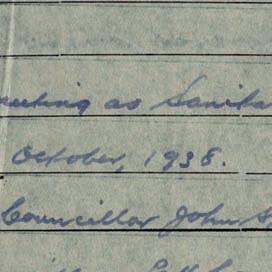 meeting as Sanita
October, 1938.
Councillor John S